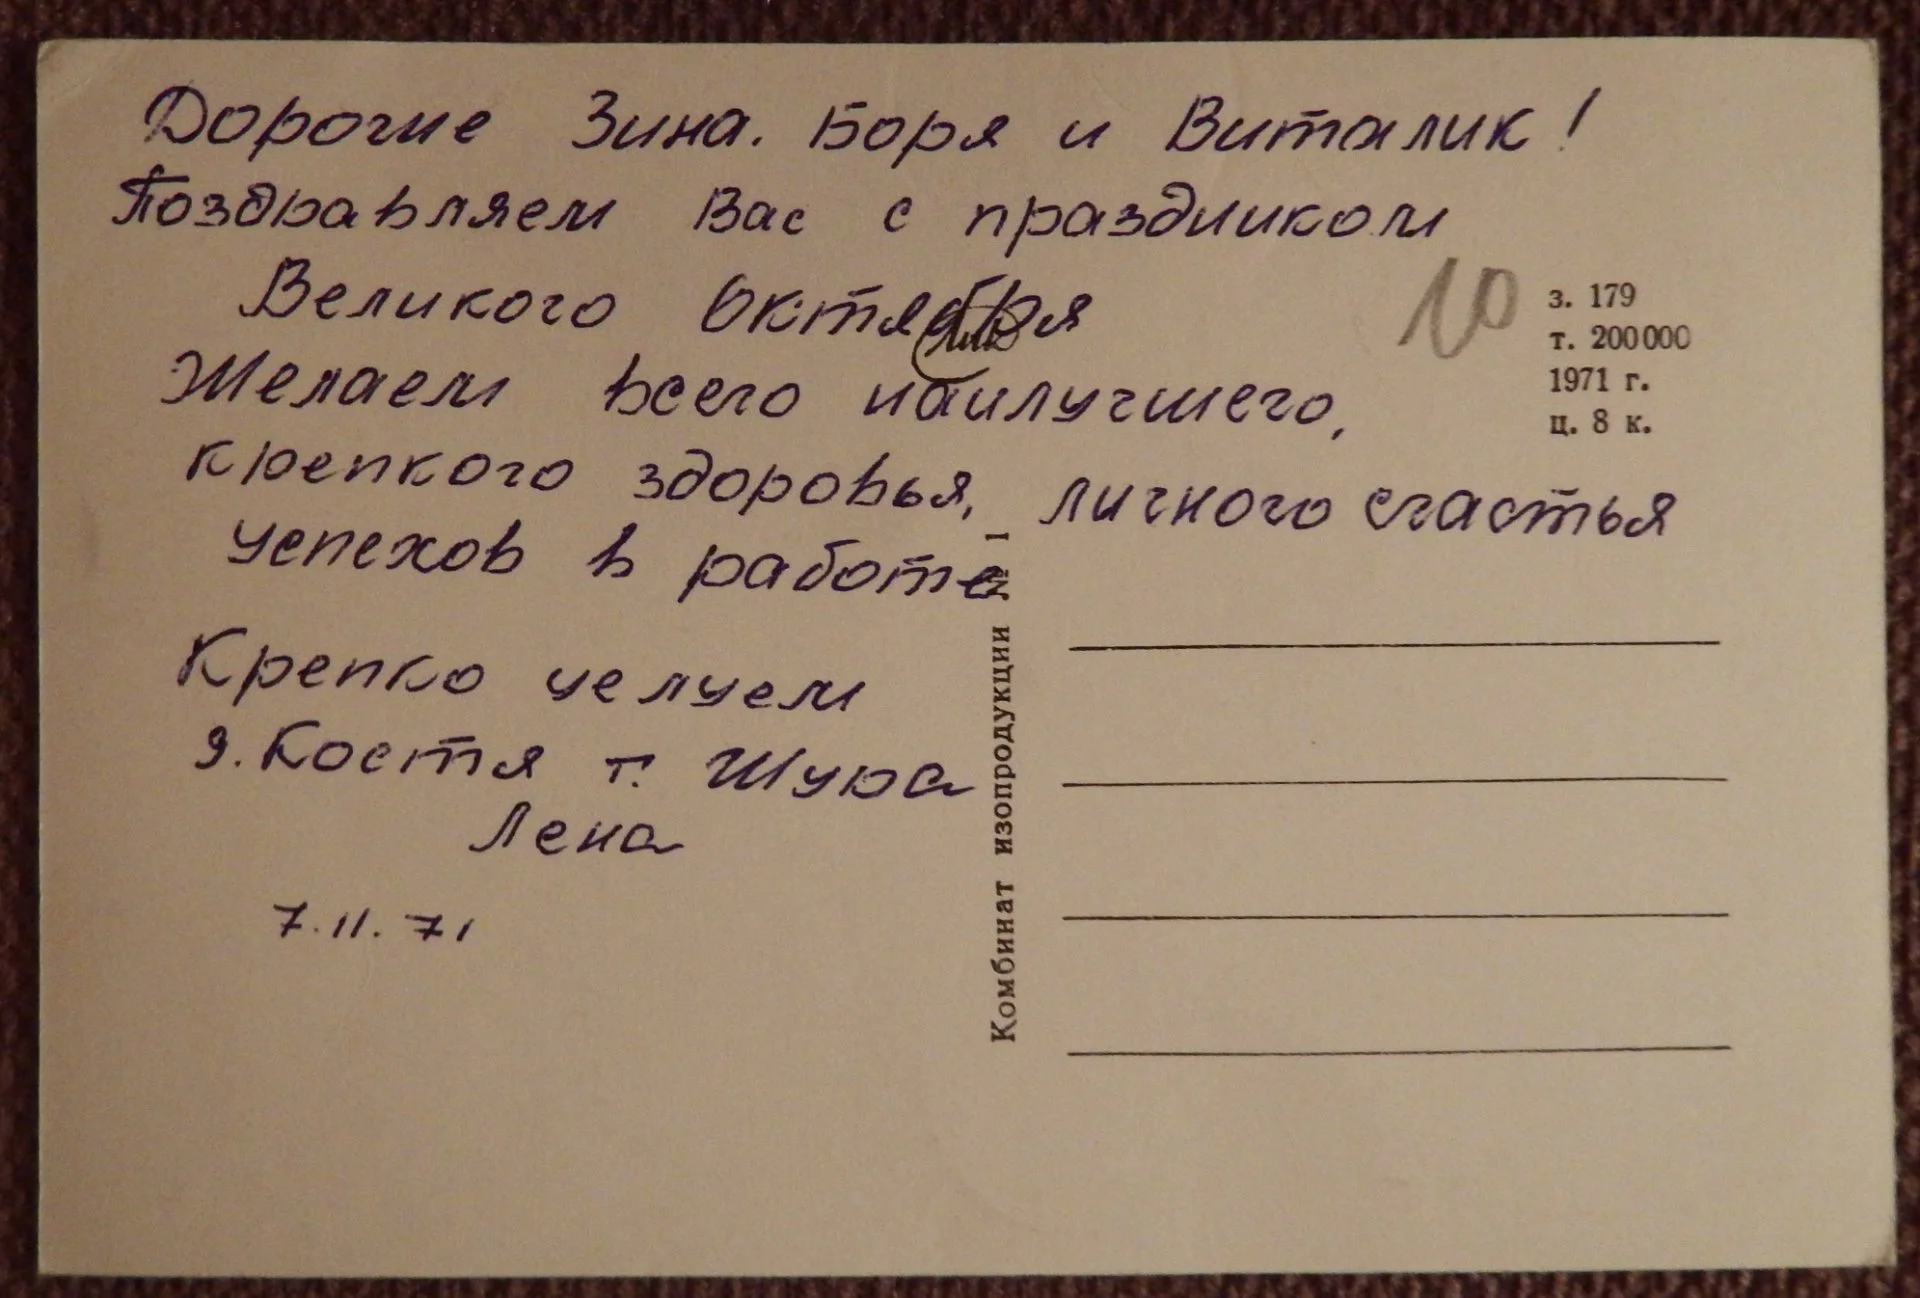 Дорогие Зина. Боря и Виталик!
Поздравляем Вас с праздником
Великого Октября
Желаем всего наилучшего,
крепкого здоровья, личного счастья
успехов в работе
Крепко целуем
д. Костя т. Шура
Лена
7.11.71
10
з. 179
т. 200000
1971 г.
ц. 8 к.
Комбинат изопродукции № 1